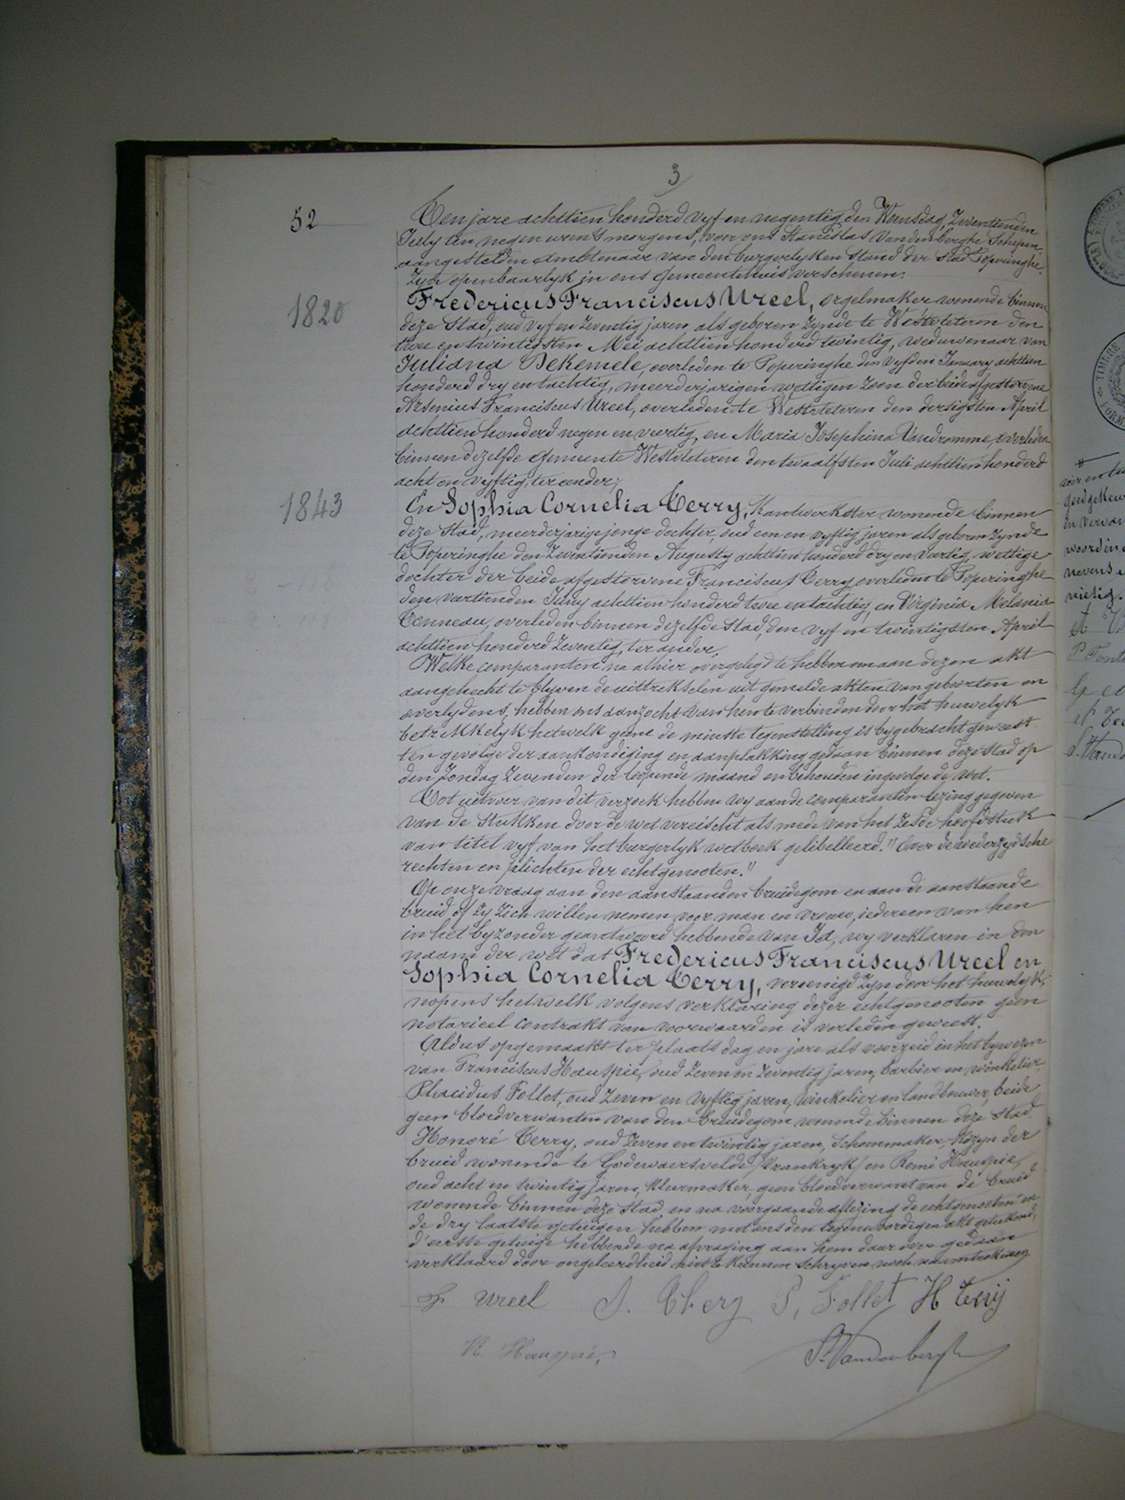 3
52
Ten jare achttien honderd vyf en negentig, den Woensdag Zeventienden
July ten negen uren 's morgens, voor ons Stanislas Vandenberghe Schepen
aangestelden Ambtenaar van den burgerlyken stand der Stad Poperinghe,
Zyn openbaarlyk in ons gemeentehuis verschenen:
1820
Fredericus Franciscus Ureel, orgelmaker wonende binnen
deze Stad, oud vyf en Zeventig jaren als geboren Zynde te Westvleteren den
twee en twintigsten Mei achttien honderd twintig, weduwenaar van
Juliana Dekemele, overleden te Poperinghe den vyfden January achttien
honderd dry en tachtig, meerderjarigen wettigen Zoon der beide afgestorvene
Arsenius Franciscus Ureel, overleden te Westvleteren den dertigsten April
achttien honderd negen en veertig, en Maria Josephina Vandromme, overleden
binnen dezelfde gemeente Westvleteren den twaalfsten Juli achttien honderd
acht en vyftig, ter eender;
1843
En Sophia Cornelia Terry, Kantwerkster wonende binnen
deze Stad, meerderjarige jonge dochter, oud een en vyftig jaren als geboren Zynde
te Poperinghe den Zeventienden Augusty achttien honderd dry en veertig, wettige
dochter der beide afgestorvene Franciscus Terry overleden te Poperinghe
den veertienden Juny achttien honderd twee en tachtig, en Virginia Melania
overleden binnen dezelfde Stad, den vyf en twintigsten April
achttien honderd Zeventig, ter ander.
Welke comparanten na alhier overgelegd te hebben om aan dezen akt
aangehecht te blyven de uittrekselen uit gemelde akten van geboorten en
overlydens, hebben ons aanzocht van hen te verbinden door het huwelyk
betrekkelyk hetwelk geene de minste tegenstelling is bygebracht geweest
ten gevolge der aankondiging en aanplakking gedaan binnen deze Stad op
den Zondag Zevenden der loopende maand en behouden ingevolge de wet.
Tot uitvoer van dit verzoek hebben wy aan de comparanten lezing gegeven
van de Stukken door de wet vereischt als mede van het Zesde hoofdstuk
van titel vyf van het burgerlyk wetboek gelibelleerd. "Over de wederzydsche
rechten en plichten der echtgenooten."
Op onze vraag aan den aanstaanden bruidegom en aan de aanstaande
bruid of Zy Zich willen nemen voor man en vrouw, iedereen van hen
in het byzonder geantwoord hebbende van Ja, wy verklaren in den
naam der wet dat Fredericus Franciscus Ureel en
Sophia Cornelia Terry, vereenigd Zyn door het huwelyk;
nopens hetwelk volgens verklaring dezer echtgenooten geen
notarieel contrakt van voorwaarden is verleden geweest.
Aldus opgemaakt ter plaats dag en jare als voorzeid in het bywezen
van Franciscus Hauspie, oud Zeven en Zeventig jaren, barbier en winkelier,
Placidus Follet, oud Zeven en vyftig jaren, winkelier en landbouwer, beide
geen bloedverwanten van den bruidegom wonende binnen deze Stad
Honoré Terry, oud Zeven en twintig jaren, schoenmaker, Kozyn der
bruid wonende te Godewaersvelde (Vrankryk) en Remi Hauspie,
oud acht en twintig jaren, geen bloedverwant van de bruid
wonende binnen deze Stad, en na voorgaande aflezing de echtgenooten en
de dry laatste getuigen hebben met ons den tegenwoordigen akt geteekend,
d'eerste getuige hebbende na afvraging aan hem daar over gedaan
verklaard door ongeleerdheid niet te kunnen schryven noch naamteekenen
F Ureel S. Thery P. Follet H Terry
R. Hauspie
St. Vandenberghe